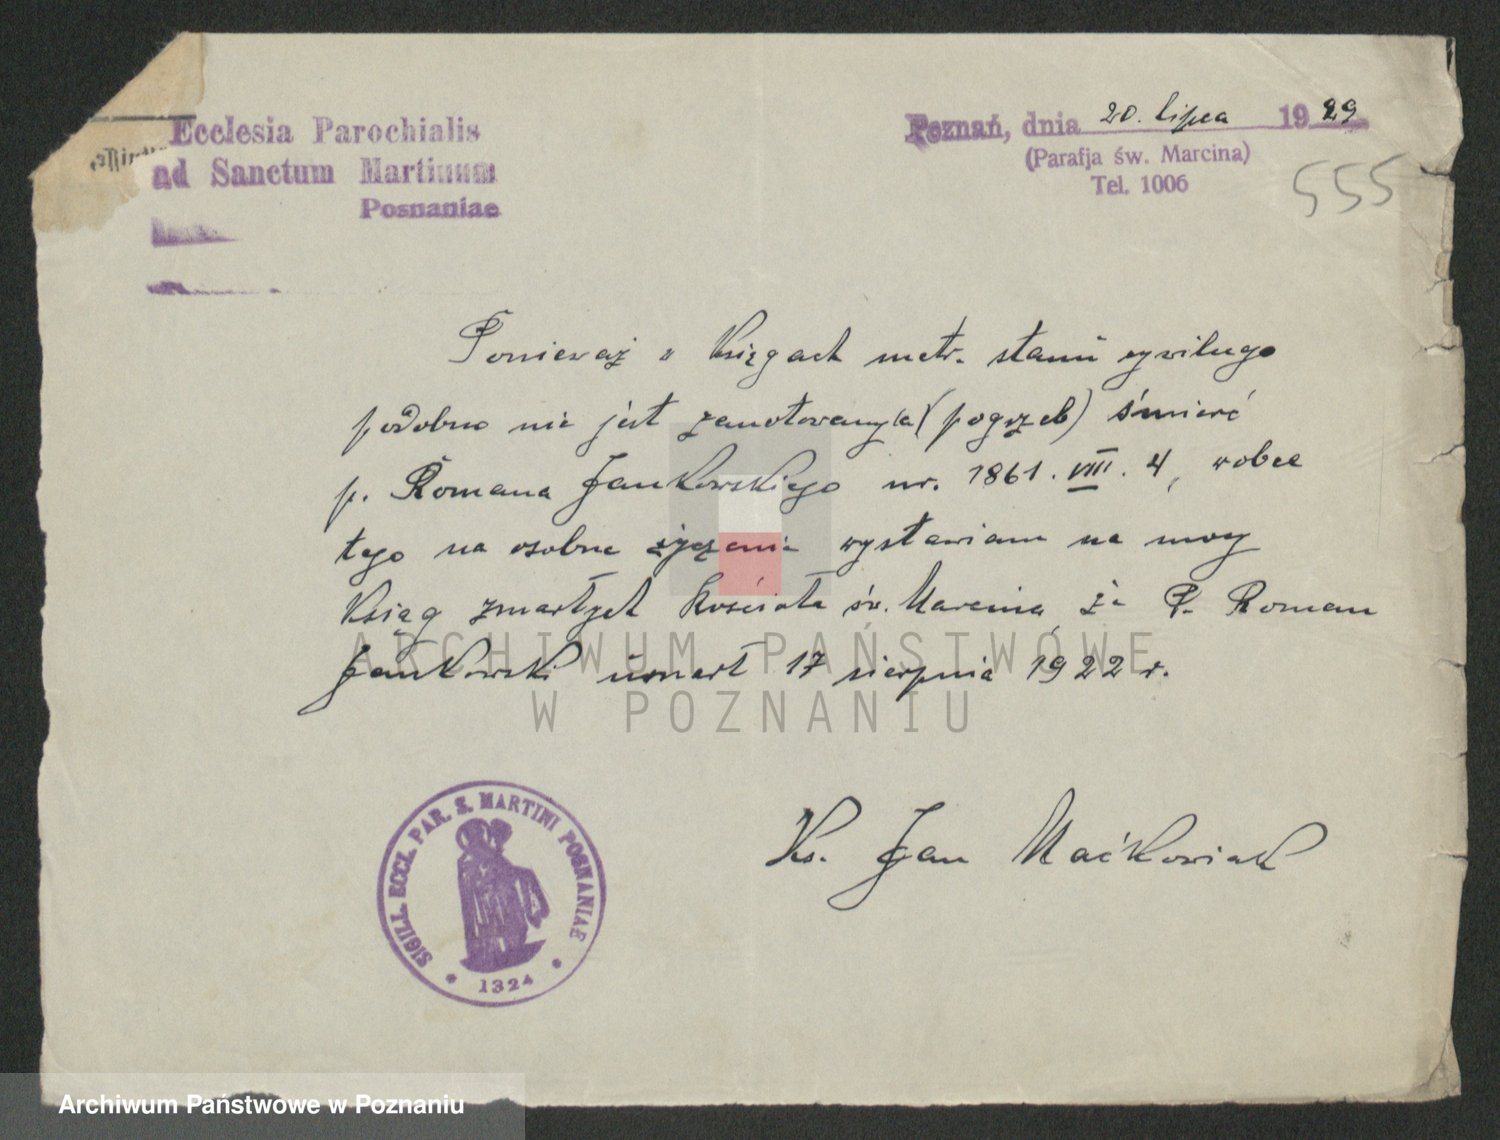 Ecclesia Parochialis
ad Sanctum Martinum
Posnaniae
Poznań, dnia 20. lipca 1929
(Parafja św. Marcina)
Tel. 1006
555
Ponieważ w Księgach metr. stanu cywilnego
podobno nie jest zanotowany/a (pogrzeb) śmierć
p. Romana Jankowskiego ur. 1861. VIII. 4, wobec
tego na osobne życzenie wystawiam na mocy
Ksiąg zmarłych Kościoła św. Marcina, że P. Roman
Jankowski umarł 17 sierpnia 1922 r.
Ks. Jan Maćkowiak
SIGILL. ECCL. PAR. S. MARTINI POSNANIAE
* 1324 *
ARCHIWUM PAŃSTWOWE
W POZNANIU
Archiwum Państwowe w Poznaniu